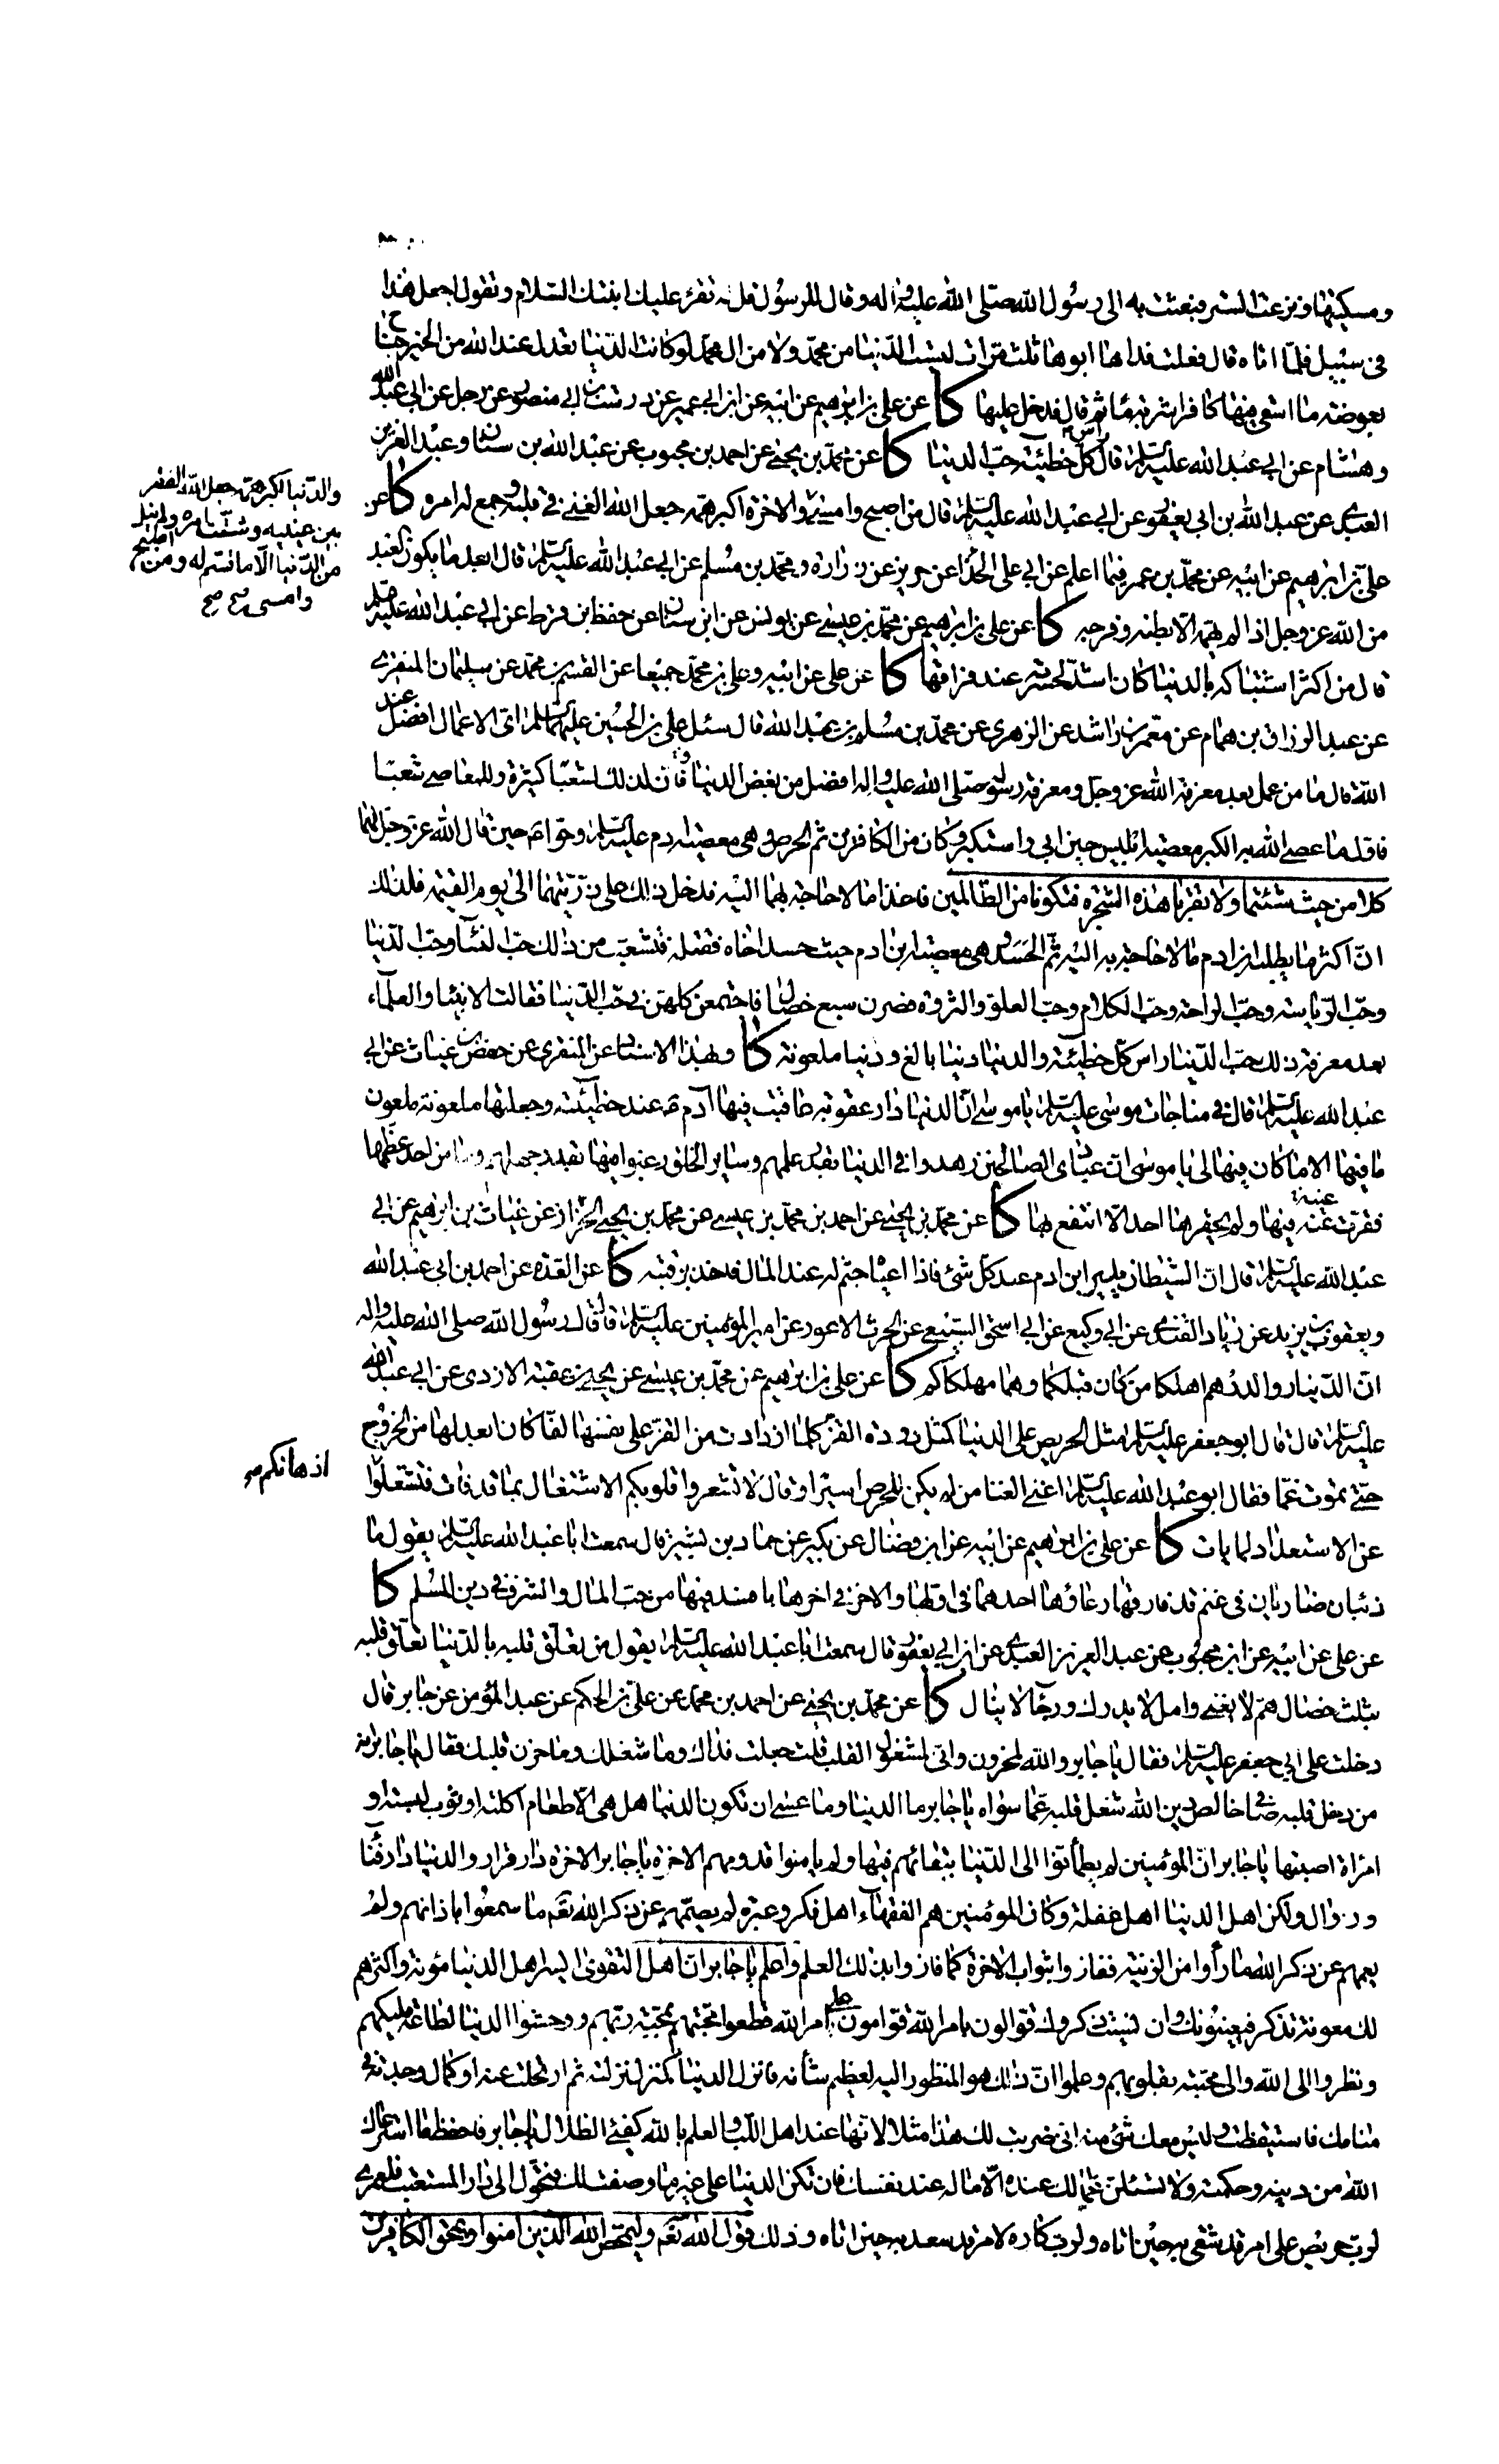 ومسكيتها ونزعت الستر فبعثت به الى رسول الله صلى الله عليه واله وقال للرسول قل له تقرء عليك ابنتك السلام وتقول اجعل هذا
فى سبيل فلما اتاه قال فعلت فداها ابوها ثلث مرات ليست الدنيا من محمد ولا من ال محمد لو كانت الدنيا تعدل عند الله من الخير جناح
بعوضة ما اسقى فيها كافرا شربة ماء ثم قال فدخل عليها كا عن على بن ابراهيم عن ابيه عن ابن ابى عمير عن درست بن ابى منصور عن رجل عن ابى عبد الله
وهشام عن ابى عبد الله عليه السلام قال راس كل خطيئة حب الدنيا كا عن محمد بن يحيى عن احمد بن محبوب عن عبد الله بن سنان وعبد العزيز
العبدى عن عبد الله بن ابى يعفور عن ابى عبد الله عليه السلام قال من اصبح وامسى والاخرة اكبر همه جعل الله الغنى فى قلبه وجمع له امره كا عن
والدنيا اكبر همه جعل الله الفقر
بين عينيه وشتت امره ولم ينل
من الدنيا الا ما قسم له ومن اصبح
وامسى صح صح
على بن ابراهيم عن ابيه عن محمد بن عمر فيما اعلم عن ابى على الحذاء عن حريز عن زرارة ومحمد بن مسلم عن ابى عبد الله عليه السلام قال ابعد ما يكون العبد
من الله عز وجل اذا لم يهمه الا بطنه وفرجه كا عن على بن ابراهيم عن محمد بن عيسى عن يونس عن ابن سنان عن حفظ بن قرط عن ابى عبد الله عليه السلام
قال من اكثر اشتباكه بالدنيا كان اشد لحسرته عند فراقها كا عن على عن ابيه وعلى بن محمد جميعا عن القسم بن محمد عن سليمان المنقرى
عن عبد الرزاق بن همام عن معمر بن راشد عن الزهرى عن محمد بن مسلم بن عبد الله قال سئل على بن الحسين عليهما السلام اى الاعمال افضل عند
الله قال ما من عمل بعد معرفة الله عز وجل ومعرفة رسوله صلى الله عليه واله افضل من بغض الدنيا فان لذلك لشعبا كثيرة وللمعاصى شعبا
فاول ما عصى الله به الكبر معصية ابليس حين ابى واستكبر وكان من الكافرين ثم الحرص وهى معصية ادم عليه السلام وحوا حين قال الله عز وجل لهما
كلا من حيث شئتما ولا تقربا هذه الشجرة فتكونا من الظالمين فاخذا ما لا حاجة بهما اليه فدخل ذلك على ذريتهما الى يوم القيمة فلذلك
ان اكثر ما يطلب ابن ادم ما لا حاجة به اليه ثم الحسد وهى معصية ابن ادم حيث حسد اخاه فقتله فتشعب من ذلك حب النساء وحب الدنيا
وحب الرياسة وحب الراحة وحب الكلام وحب العلو والثروة فصرن سبع خصال فاجتمعن كلهن فى حب الدنيا فقالت الانبياء والعلماء
بعد معرفة ذلك حب الدنيا راس كل خطيئة والدنيا دنيا بلاغ ودنيا ملعونة كا وبهذا الاسناد عن المنقرى عن حفص بن غياث عن ابى
عبد الله عليه السلام قال فى مناجات موسى عليه السلام يا موسى ان الدنيا دار عقوبة عاقبت فيها ادم عند خطيئته وجعلتها ملعونة ملعون
ما فيها الا ما كان فيها لى يا موسى ان عبادى الصالحين زهدوا فى الدنيا بقدر علمهم وساير الخلق رغبوا فيها بقدر جهلهم وما من احد عظمها
فقرت عينه فيها ولم يحقرها احد الا انتفع بها كا عن محمد بن يحيى عن احمد بن محمد بن عيسى عن محمد بن يحيى الخزاز عن غياث بن ابراهيم عن ابى
عبد الله عليه السلام قال ان الشيطان يدير ابن ادم عند كل شئ فاذا اعياه جثم له عند المال فاخذ برقبته كا عن العدة عن احمد بن ابى عبد الله
ويعقوب بن يزيد عن زياد القندى عن ابى وكيع عن ابى اسحق السبيعى عن الحرث الاعور عن امير المؤمنين عليه السلام قال قال رسول الله صلى الله عليه واله
ان الدينار والدرهم اهلكا من كان قبلكم وهما مهلكاكم كا عن على بن ابراهيم عن محمد بن عيسى عن يحيى بن عقبة الازدى عن ابى عبد الله
عليه السلام قال قال ابو جعفر عليه السلام مثل الحريص على الدنيا كمثل دودة القز كلما ازدادت من القز على نفسها لفا كان ابعد لها من الخروج
حتى تموت غما فقال ابو عبد الله عليه السلام اغنى الغنا من لم يكن للحرص اسيرا وقال لا تشعروا قلوبكم الاشتغال بما قد فات فتشغلوا
اذهانكم صح
عن الاستعداد لما يات كا عن على بن ابراهيم عن ابيه عن ابن فضال عن بكير عن حماد بن بشير قال سمعت ابا عبد الله عليه السلام يقول ما
ذئبان ضاريان فى غنم قد فارقها رعاؤها احدهما فى اولها والاخر فى اخرها بافسد فيها من حب المال والشرف فى دين المسلم كا
عن على عن ابيه عن ابن محبوب عن عبد العزيز العبدى عن ابن ابى يعفور قال سمعت ابا عبد الله عليه السلام يقول من تعلق قلبه بالدنيا تعلق قلبه
بثلث خصال هم لا يغنى وامل لا يدرك ورجآ لا ينال كا عن محمد بن يحيى عن احمد بن محمد عن على بن الحكم عن عبد المؤمن عن جابر قال
دخلت على ابى جعفر عليه السلام فقال يا جابر والله لمحزون وانى لمشغول القلب قلت جعلت فداك وما شغلك وما حزن قلبك فقال يا جابر انه
من دخل قلبه صافى خالص دين الله شغل قلبه عما سواه يا جابر ما الدنيا وما عسى ان تكون الدنيا هل هى الا طعام اكلته او ثوب لبسته او
امراة اصبتها يا جابر ان المؤمنين لم يطمأنوا الى الدنيا ببقائهم فيها ولم يامنوا قدومهم الاخرة يا جابر الاخرة دار قرار والدنيا دار فنآ
وزوال ولكن اهل الدنيا اهل غفلة وكان المؤمنين هم الفقهآء اهل فكر وعبرة لم يصمهم عن ذكر الله تعم ما سمعوا باذانهم ولم
يعمهم عن ذكر الله ما رأوا من الزينة ففازوا بثواب الاخرة كما فازوا بذلك العلم واعلم يا جابر ان اهل التقوى ايسر اهل الدنيا مئونة واكثرهم
لك معونة تذكر فيعينونك وان نسيت ذكروك قوالون بامر الله قوامون على امر الله قطعوا محبتهم بمحبة ربهم ووحشوا الدنيا لطاعة مليكهم
ونظروا الى الله والى محبته بقلوبهم وعلموا ان ذلك هو المنظور اليه لعظيم شأنه فانزل الدنيا كمنزل نزلته ثم ارتحلت عنه او كمال وجدته فى
منامك فاستيقظت وليس معك شئ منه انى ضربت لك هذا مثلا لانها عند اهل اللب والعلم بالله كفئ الظلال يا جابر فاحفظ ما استرعاك
الله من دينه وحكمته ولا تسئلن عما لك عنده الا ما له عند نفسك فان تكن الدنيا على غير ما وصفت لك فتحول الى دار المستعتب فلعمرى
لرب حريص على امر قد شقى به حين اتاه ولرب كاره لامر قد سعد به حين اتاه وذلك قول الله تعم وليمحص الله الذين امنوا ويمحق الكافرين